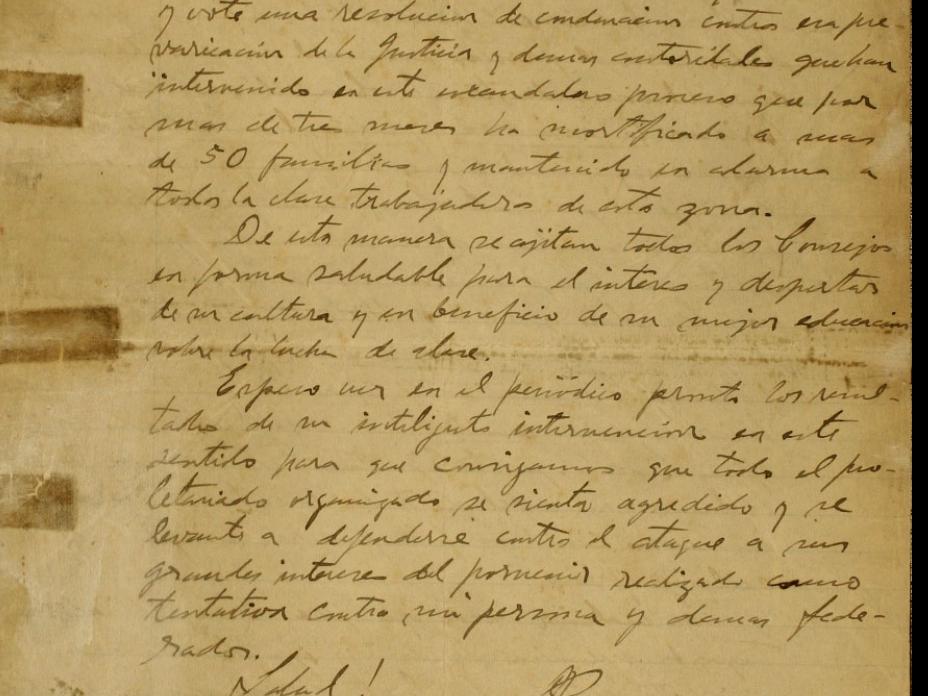 y vote una resolucion de condenacion contra esa pre-
varicacion de la Justicia y demas autoridades que han
intervenido en este escandaloso proceso que por
mas de tres meses ha mortificado a mas
de 50 familias y mantenido en alarma a
toda la clase trabajadora de esta zona.
De esta manera se ajitan todos los Consejos
en forma saludable para el interes y despertar
de su cultura y en beneficio de su mejor educacion
sobre la lucha de clase.
Espero ver en el periódico pronto los resul-
tados de su inteligente intervencion en este
sentido para que consigamos que todo el pro-
letariado organizado se sienta agredido y se
levante a defenderse contra el ataque a sus
grandes intereses del porvenir realizado como
tentativa contra mi persona y demas fede-
rados.
Salud!